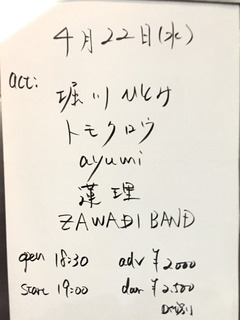 4月22日(水)
act:
堀川ひとみ
トモクロウ
ayumi
蓮理
ZAWADI BAND
open 18:30 adv ¥2000
start 19:00 door ¥2,500